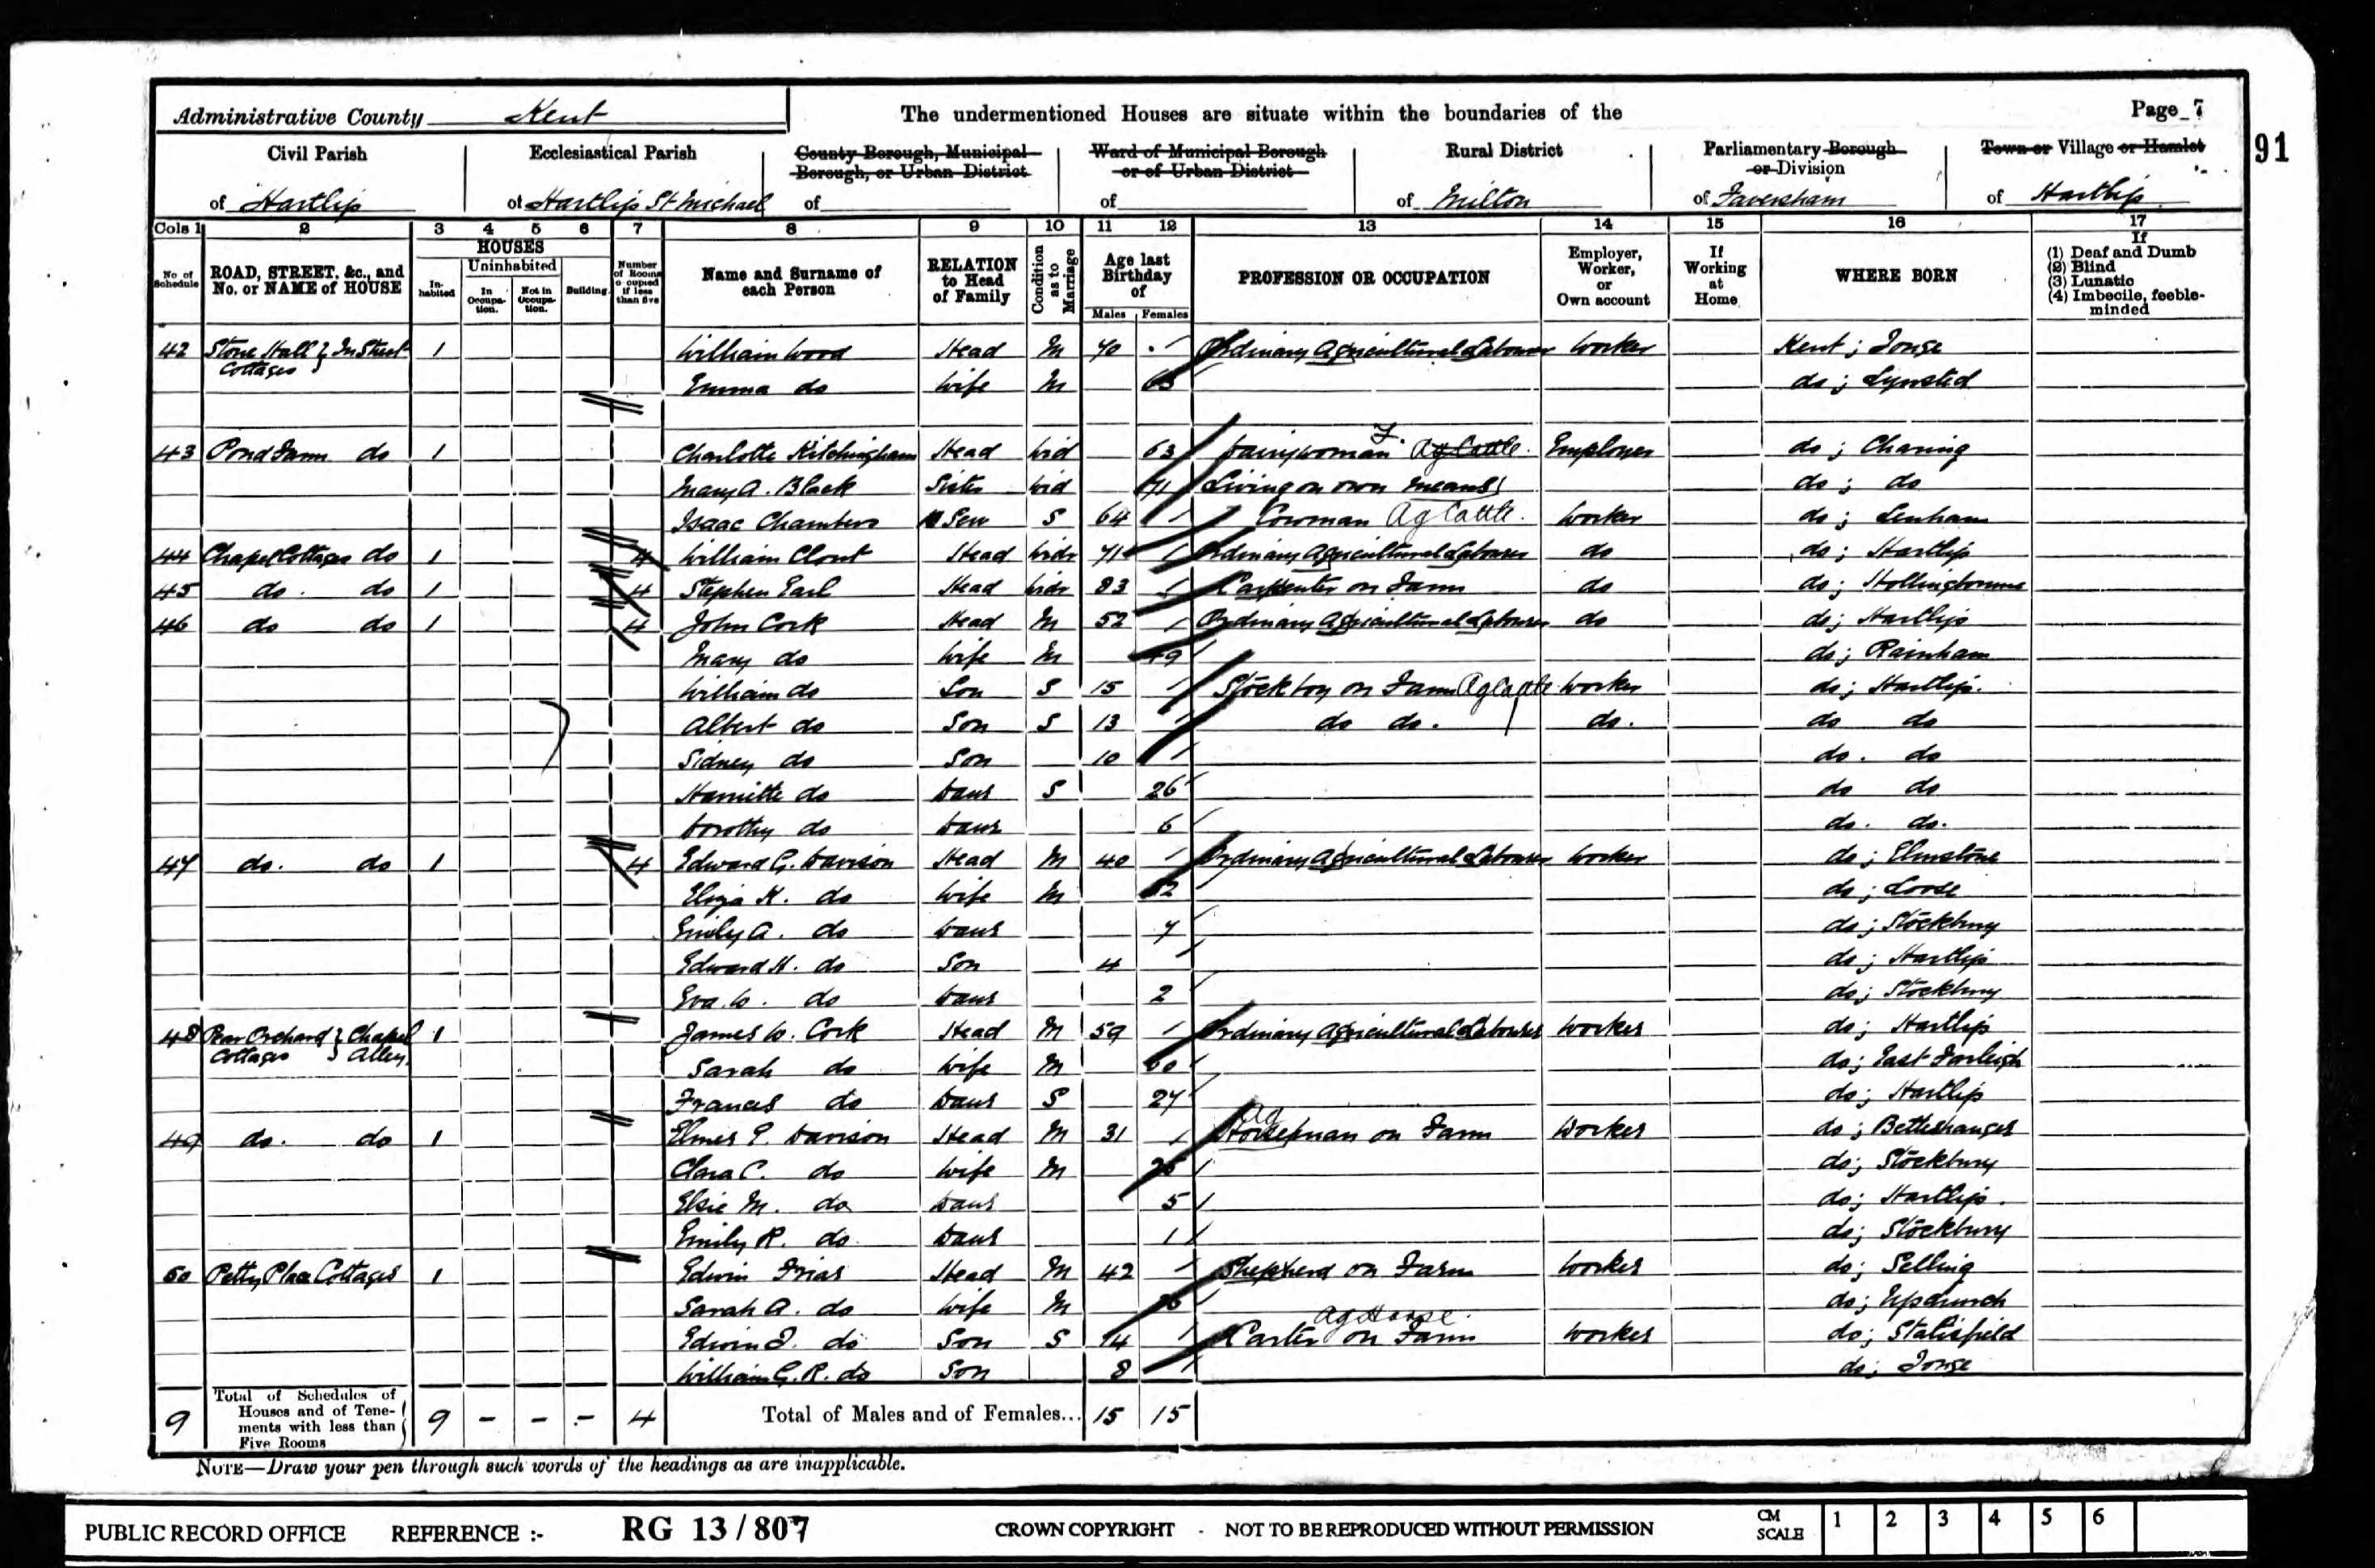 Administrative County Kent
The undermentioned Houses are situate within the boundaries of the
Page 7
91
Civil Parish of Hartlip
Ecclesiastical Parish of Hartlip St Michael
County Borough, Municipal Borough, or Urban District of
Ward of Municipal Borough or of Urban District of
Rural District of Milton
Parliamentary Borough or Division of Faversham
Town or Village or Hamlet of Hartlip
Cols 1 2 3 4 5 6 7 8 9 10 11 12 13 14 15 16 17
No of Schedule
ROAD, STREET, &c., and No. or NAME of HOUSE
HOUSES
In-habited
Uninhabited
In Occupa-tion.
Not in Occupa-tion.
Building.
Number of Rooms occupied if less than five
Name and Surname of each Person
RELATION to Head of Family
Condition as to Marriage
Age last Birthday of
Males Females
PROFESSION OR OCCUPATION
Employer, Worker, or Own account
If Working at Home
WHERE BORN
If
(1) Deaf and Dumb
(2) Blind
(3) Lunatic
(4) Imbecile, feeble-minded
42 Stone Hall Cottages } In Street 1 William Wood Head M 40 Ordinary Agricultural Labourer Worker Kent; Tonge
Emma do Wife M do; Lynsted
43 Pond Farm do 1 Charlotte Kitchingham Head Wid 63 Dairywoman Ag Cattle Employer do; Charing
Mary A. Black Sister Wid 71 Living on own means do; do
Isaac Chambers Serv S 64 Cowman Ag Cattle Worker do; Lenham
44 Chapel Cottages do 1 4 William Clout Head Widr 71 Ordinary Agricultural Labourer do do; Hartlip
45 do. do 1 4 Stephen Earl Head Widr 83 Carpenter on Farm do do; Hollingbourne
46 do do 1 4 John Cork Head M 52 Ordinary Agricultural Labourer do do; Hartlip
Mary do Wife M 49 do; Rainham
William do Son S 15 Stockboy on Farm Ag Cattle Worker do; Hartlip.
Albert do Son S 13 do do. do. do do
Sidney do Son 10 do. do
Harriette do Daur S 26 do do
Dorothy do Daur 6 do. do.
47 do. do 1 4 Edward G. Davison Head M 40 Ordinary Agricultural Labourer Worker do; Elmstone
Eliza K. do Wife M do; Loose
Emily A. do Daur 7 do; Stockbury
Edward H. do Son 4 do; Hartlip
Eva. W. do Daur 2 do; Stockbury
48 Pear Orchard Cottages } Chapel Alley. 1 James W. Cork Head M 59 Ordinary Agricultural Labourer Worker do; Hartlip
Sarah do Wife M 60 do; East Farleigh
Frances do Daur S 27 do; Hartlip
49 do. do 1 Elmer E. Davison Head M 31 Ag Horseman on Farm Worker do; Betteshanger
Clara C. do Wife M do; Stockbury
Elsie M. do Daur 5 do; Hartlip.
Emily R. do Daur 1 do; Stockbury
50 Petty Place Cottages 1 Edwin Friar Head M 42 Shepherd on Farm Worker do; Selling
Sarah A. do Wife M do; Upchurch
Edwin J. do Son S 14 Carter on Farm Ag Horse. Worker do; Stalisfield
William G. R. do Son 8 do; Tonge
9 Total of Schedules of Houses and of Tene-ments with less than Five Rooms 9 - - - 4 Total of Males and of Females... 15 15
NOTE—Draw your pen through such words of the headings as are inapplicable.
PUBLIC RECORD OFFICE REFERENCE :- RG 13/807 CROWN COPYRIGHT - NOT TO BE REPRODUCED WITHOUT PERMISSION CM SCALE 1 2 3 4 5 6